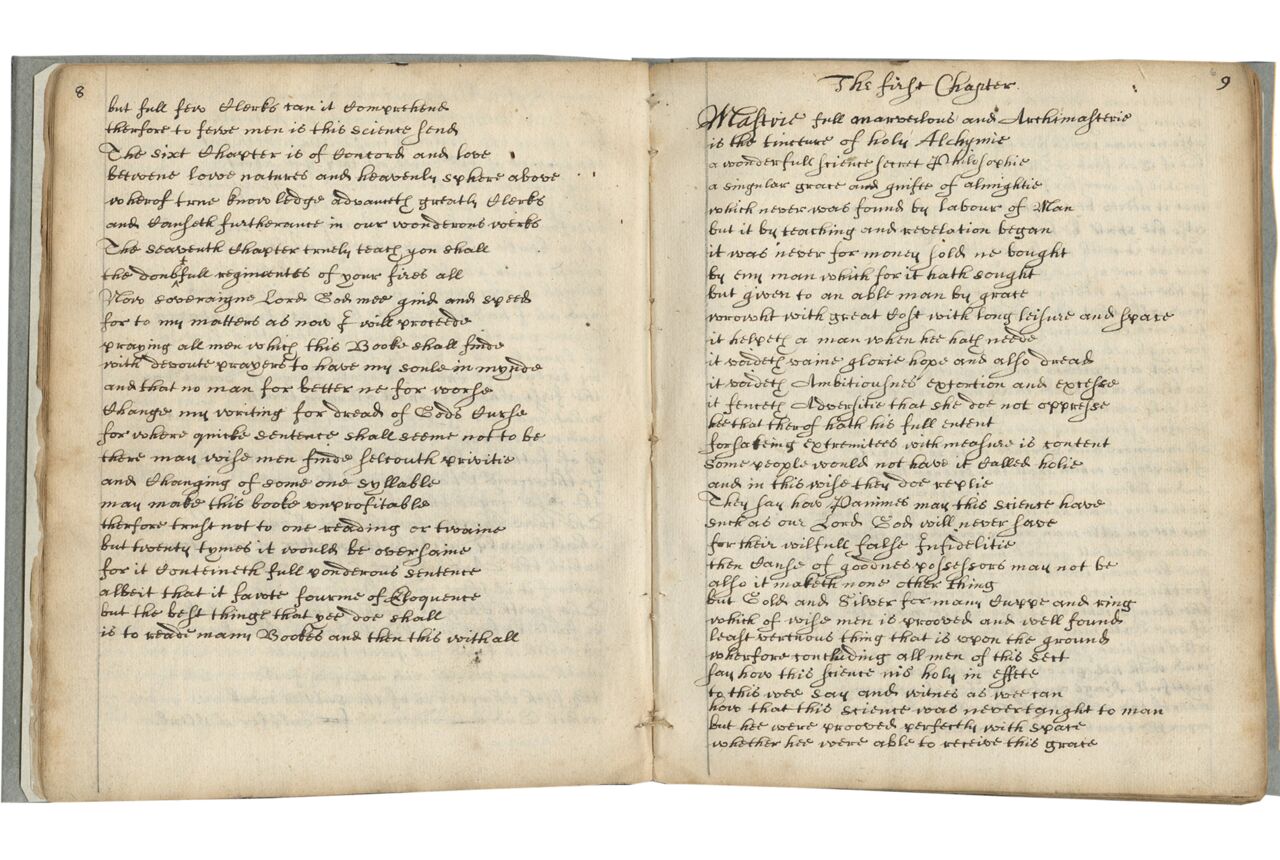 8
but full few Clerks can it Comprehend
therfore to fewe men is this science send
The sixt Chapter is of Concord and love
betwene lowe natures and heavenly sphere above
wherof true knowledge advanceth greatly Clerks
and Causeth furtherance in our wonderous werks
The seaventh Chapter truely teach you shall
the doubtfull regimentes of your fires all
Now soveraigne Lord God mee guid and speed
for to my matters as now I will proceede
praying all men which this Booke shall finde
with devoute prayers to have my soule in mynde
and that no man for better ne for worse
Change my writing for dread of Gods Curse
for where quicke sentence shall seeme not to be
there may wise men finde selcouth privitie
and Changing of some one syllable
may make this booke unprofitable
therfore trust not to one reading or twaine
but twenty tymes it would be oversaine
for it Conteineth full ponderous sentence
albeit that it favte fourme of Eloquence
but the best thinge that yee doe shall
is to reade many Bookes and then this withall
9
The first Chapter
Mastrie full marveilous and Archimasterie
is the tincture of holy Alchymie
a wonderfull science secret Philosophie
a singular grace and guifte of almightie
which never was found by labour of Man
but it by teaching and revelation began
it was never for money sold ne bought
by eny man which for it hath sought
but given to an able man by grace
wrowht with great Cost with long leisure and space
it helpeth a man when hee hath neede
it voideth vaine glorie hope and also dread
it voideth Ambitiousnes extortion and excesse
it fenceth Adversitie that she doe not oppresse
hee that therof hath his full entent
forsakeing extremitees with measure is content
Some people would not have it Called holie
and in this wise they doe replie
They say how Panimes may this science have
such as our Lord God will never save
for their wilfull false Infidelitie
then Cause of goodnes possessors may not be
also it maketh none other thing
but Gold and Silver for many Cuppe and ring
which of wise men is prooved and well found
least vertuous thing that is upon the ground
wherfore concluding all men of this sect
say how this science nis holy in effete
to this wee say and witnes as wee can
how that this science was never taught to man
but hee were prooved perfectly with space
whether hee were able to receive this grace